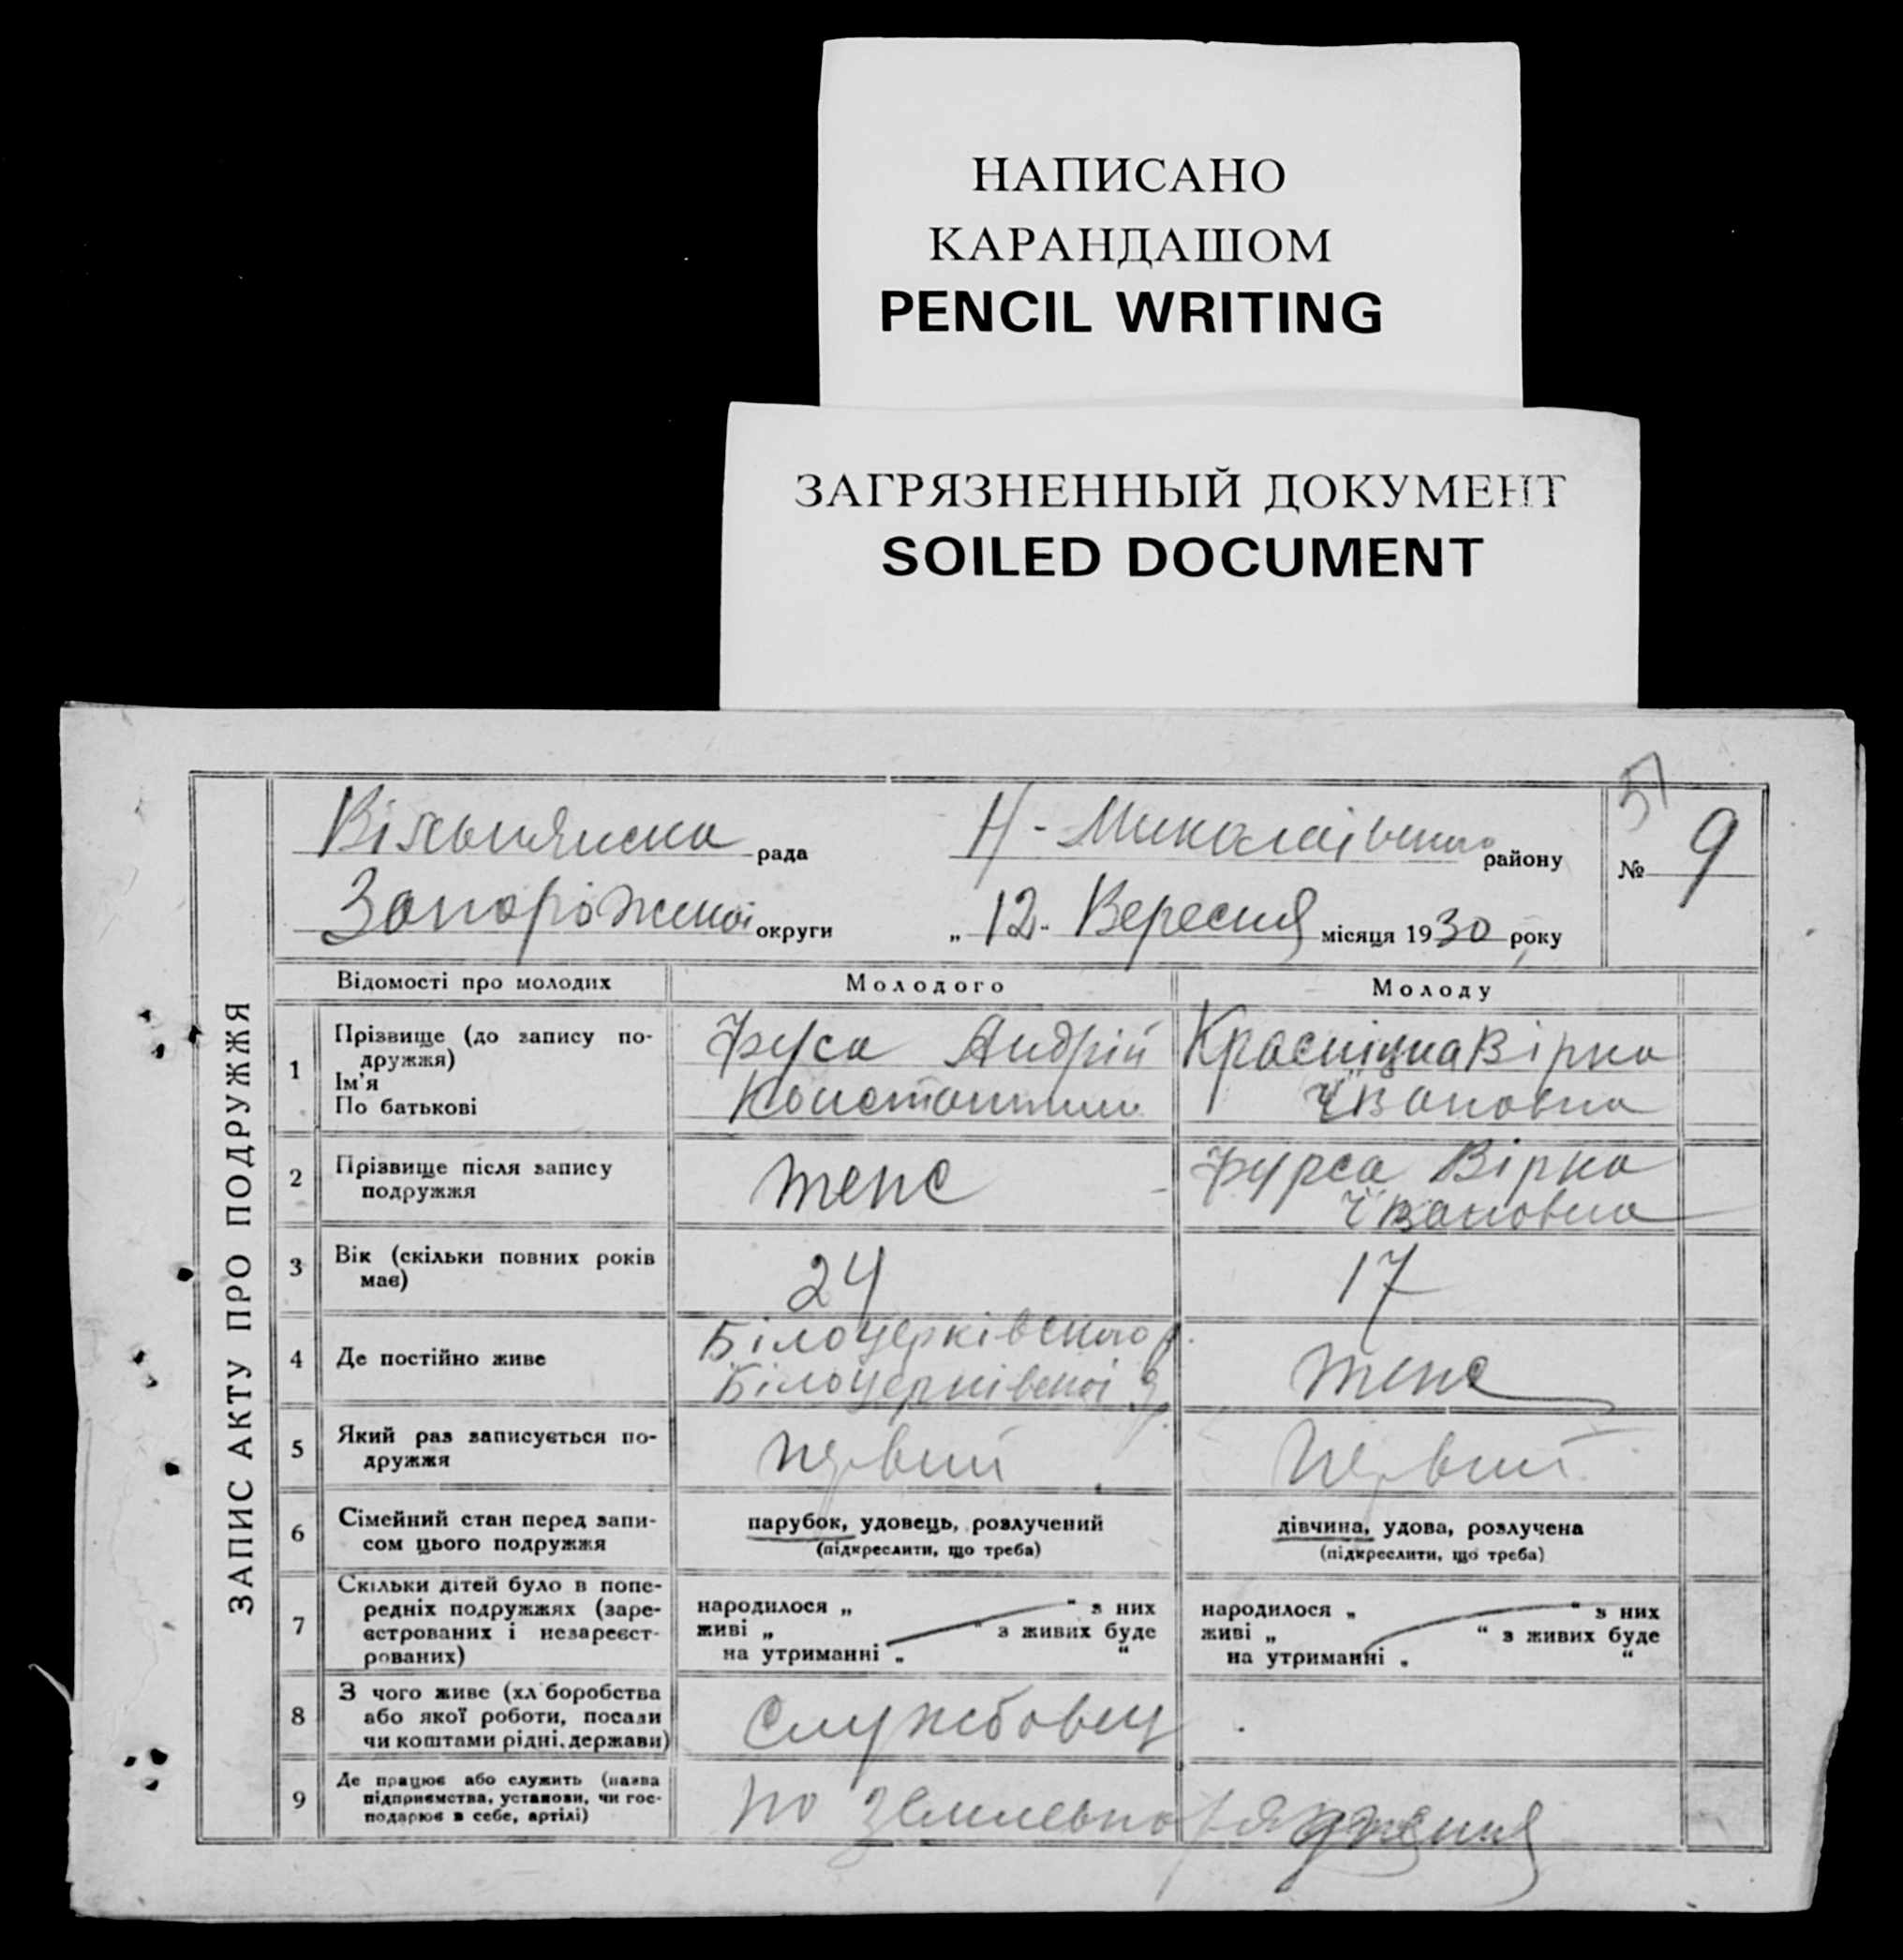 НАПИСАНО
КАРАНДАШОМ
PENCIL WRITING
ЗАГРЯЗНЕННЫЙ ДОКУМЕНТ
SOILED DOCUMENT
ЗАПИС АКТУ ПРО ПОДРУЖЖЯ
57
рада Н-Миколаівского району № 9
Запоріжскоі округи „ 12. Вересня місяця 1930 року
Відомості про молодих Молодого Молоду
1 Прізвище (до запису по-
дружжя)
Ім'я
По батькові
Фуса Андрій
Вірка
Івановна
2 Прізвище після запису
подружжя
теж
Фурса Вірка
Івановна
3 Вік (скільки повних років
має)
24
17
4 Де постійно живе
Білоцерківского р.
Білоцерківскоі
теж
5 Який раз записується по-
дружжя
первий
первий
6 Сімейний стан перед запи-
сом цього подружжя
парубок, удовець, розлучений
(підкреслити, що треба)
дівчина, удова, розлучена
(підкреслити, що треба)
7 Скільки дітей було в попе-
редніх подружжях (заре-
єстрованих і незареєст-
рованих)
народилося „ “ з них
живі „ “ з живих буде
на утриманні „ “
народилося „ “ з них
живі „ “ з живих буде
на утриманні „ “
8 З чого живе (хл боробства
або якої роботи, посади
чи коштами рідні, держави)
Службовец
9 Де працює або служить (назва
підприємства, установи, чи гос-
подарює в себе, артілі)
по